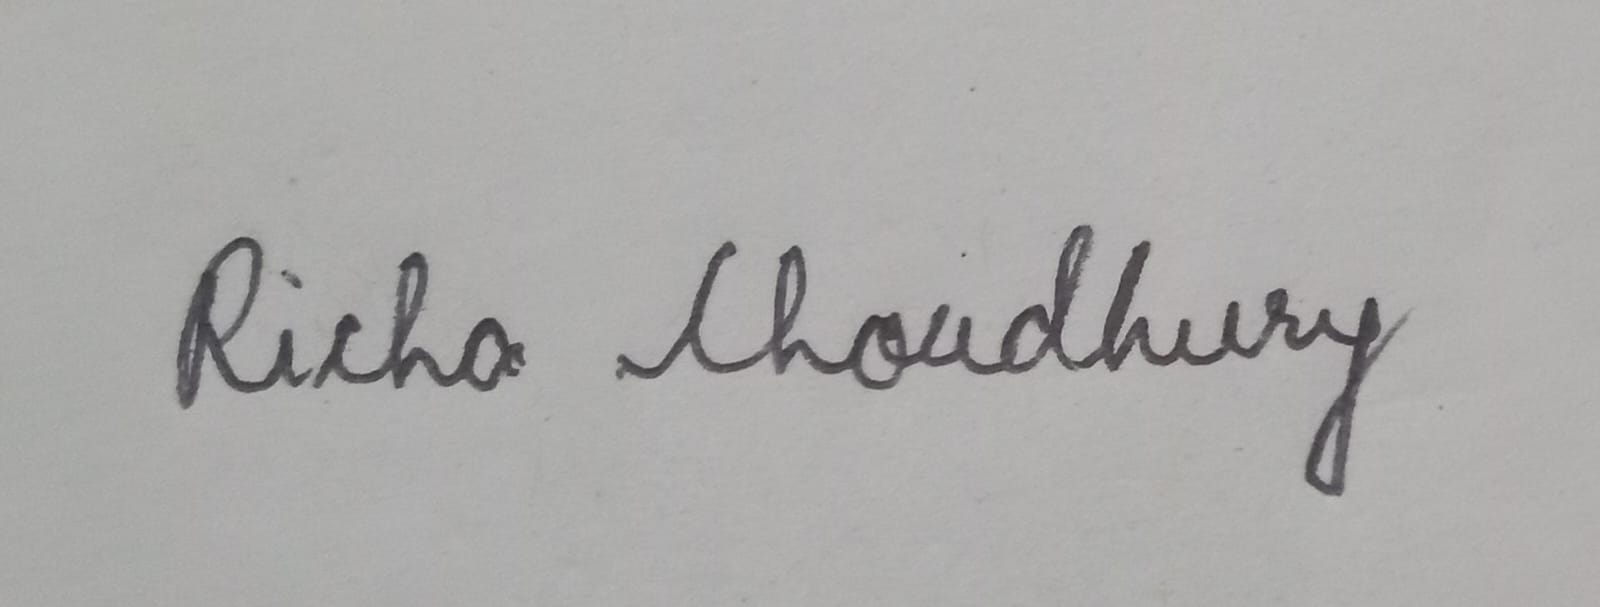 Richa Choudhury